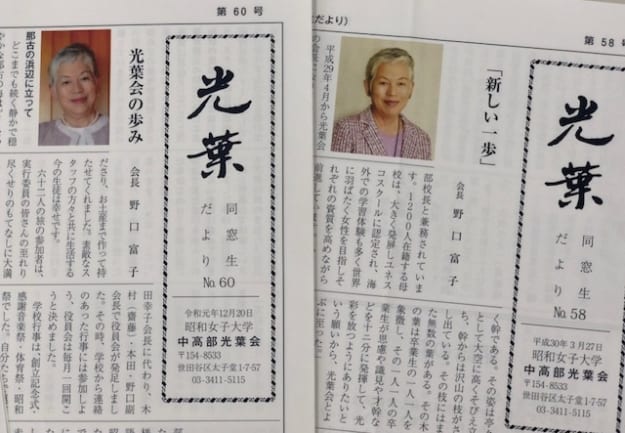 第60号
光葉
同窓生
だより
No.60
令和元年12月20日
昭和女子大学
中高部光葉会
〒154-8533
世田谷区太子堂1-7-57
03-3411-5115
光葉会の歩み
会長 野口富子
那古の浜辺に立つて
どこまでも続く静かで穏
ださり、お土産まで作って持
たせてくれました。素敵なス
タッフの方々と共に生活する
今の生徒は幸せです。
六十二人の旅の参加者は、
実行委員の皆さんの至れり
尽くせりのもてなしに大満
田幸子会長に代わり、木
村(齋藤)・本田・野口副
会長で役員会が発足しまし
た。その時、学校から連絡
のあった行事には参加しよ
う、役員会は毎月一回開こ
うと決めました。
学校行事は、創立記念式・
感謝音楽祭・体育祭・昭和
祭でした。
だより)
第58号
光葉
同窓生
だより
No.58
平成30年3月27日
昭和女子大学
中高部光葉会
〒154-8533
世田谷区太子堂1-7-57
03-3411-5115
「新しい一歩」
会長 野口富子
平成29年4月から光葉会
部校長と兼務されていま
す。1200人在籍する母
校は、大きく発展しユネス
コスクールに認定され、海
外での学習体験も多く世界
に羽ばたく女性を目指しそ
れぞれの資質を高めながら
前進しています。
く幹である。その姿は亭々
として大空に高くそびえ立
ち、幹からは沢山の枝がさ
し出ている。その枝にはま
た無数の葉がある。その木
の葉は卒業生の一人一人を
象徴し、その一人一人の卒
業生が思慮や識見や才幹な
どを十二分に発揮して、光
彩を放つようにありたいと
いう願いから、光葉会とよ